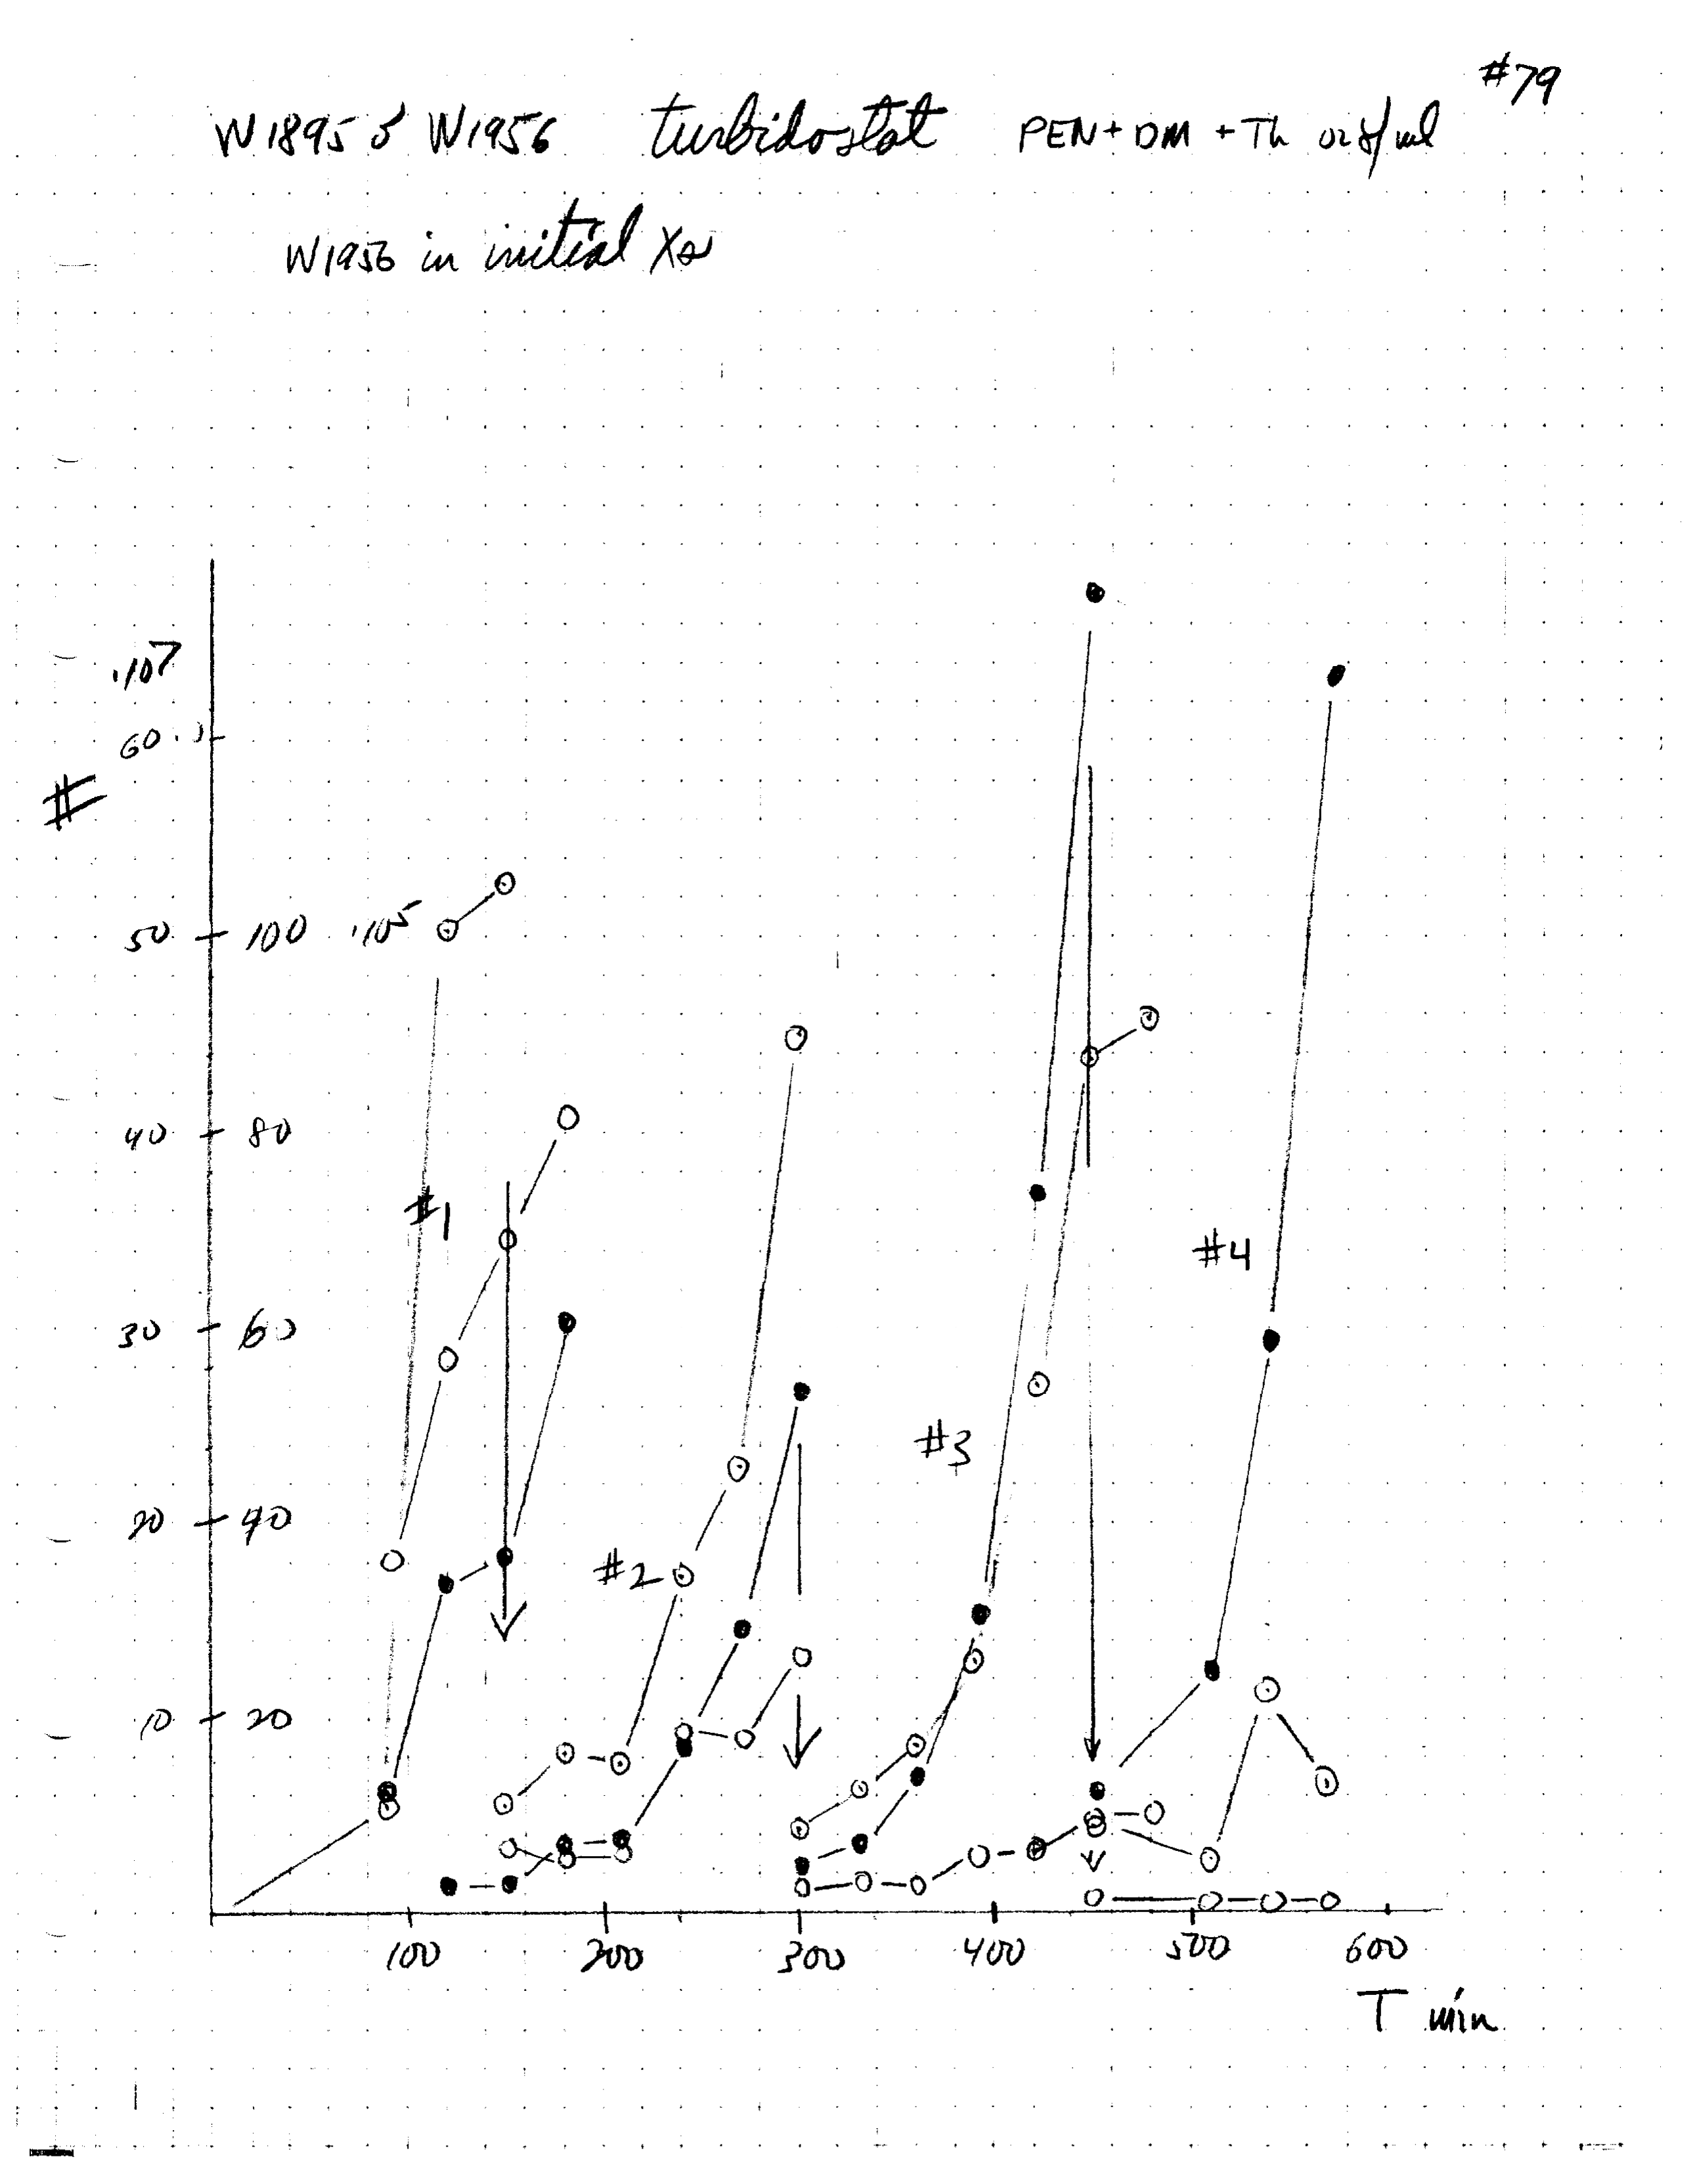 #79
W1895 & W1956 turbidostat PEN + DM + Th
W1956 in initial Xs
·10⁷
60
#
50 100 ·10⁵
40 80
#1
#4
30 60
#3
20 40
#2
10 20
100 200 300 400 500 600
T min